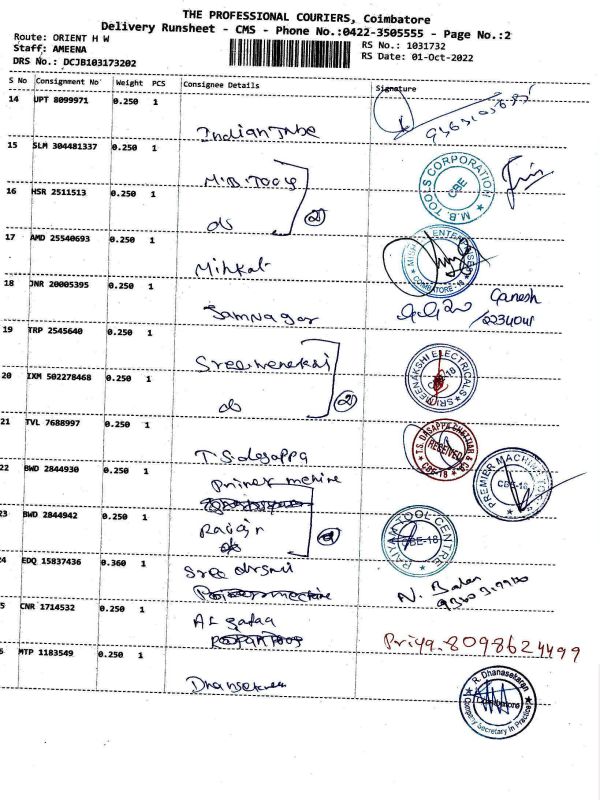 THE PROFESSIONAL COURIERS, Coimbatore
Delivery Runsheet - CMS - Phone No.:0422-3505555 - Page No.:2
Route: ORIENT H W
RS No.: 1031732
Staff: AMEENA
RS Date: 01-Oct-2022
DRS No.: DCJB103173202
S No Consignment No Weight PCS Consignee Details Signature
14 UPT 8099971 0.250 1
Indian Tube
15 SLM 304481337 0.250 1
M.B. Tools
M.B. TOOLS CORPORATION
CBE
16 HSR 2511513 0.250 1
do
2
17 AMD 25540693 0.250 1
Mihkal
COIMBATORE-18
18 JNR 20005395 0.250 1
Samnagar
Ganesh
2234041
19 TRP 2545640 0.250 1
Sree menakshi
SRI MEENAKSHI ELECTRICALS
CBE-18
20 IXM 502278468 0.250 1
do
2
21 TVL 7688997 0.250 1
T.S. dasappa
T.S. DASAPPA CHETTIAR & CO.
RECEIVED
CBE-18
22 BWD 2844930 0.250 1
PREMIER MACHINE TO
CBE-18
23 BWD 2844942 0.250 1
do
2
RAIYAM TOOL CENTRE
CBE-18
24 EDQ 15837436 0.360 1
N. Balan
25 CNR 1714532 0.250 1
Priya. 8098624499
26 MTP 1183549 0.250 1
Dhansekaran
R. Dhanasekaran
Coimbatore
Company Secretary In Practice